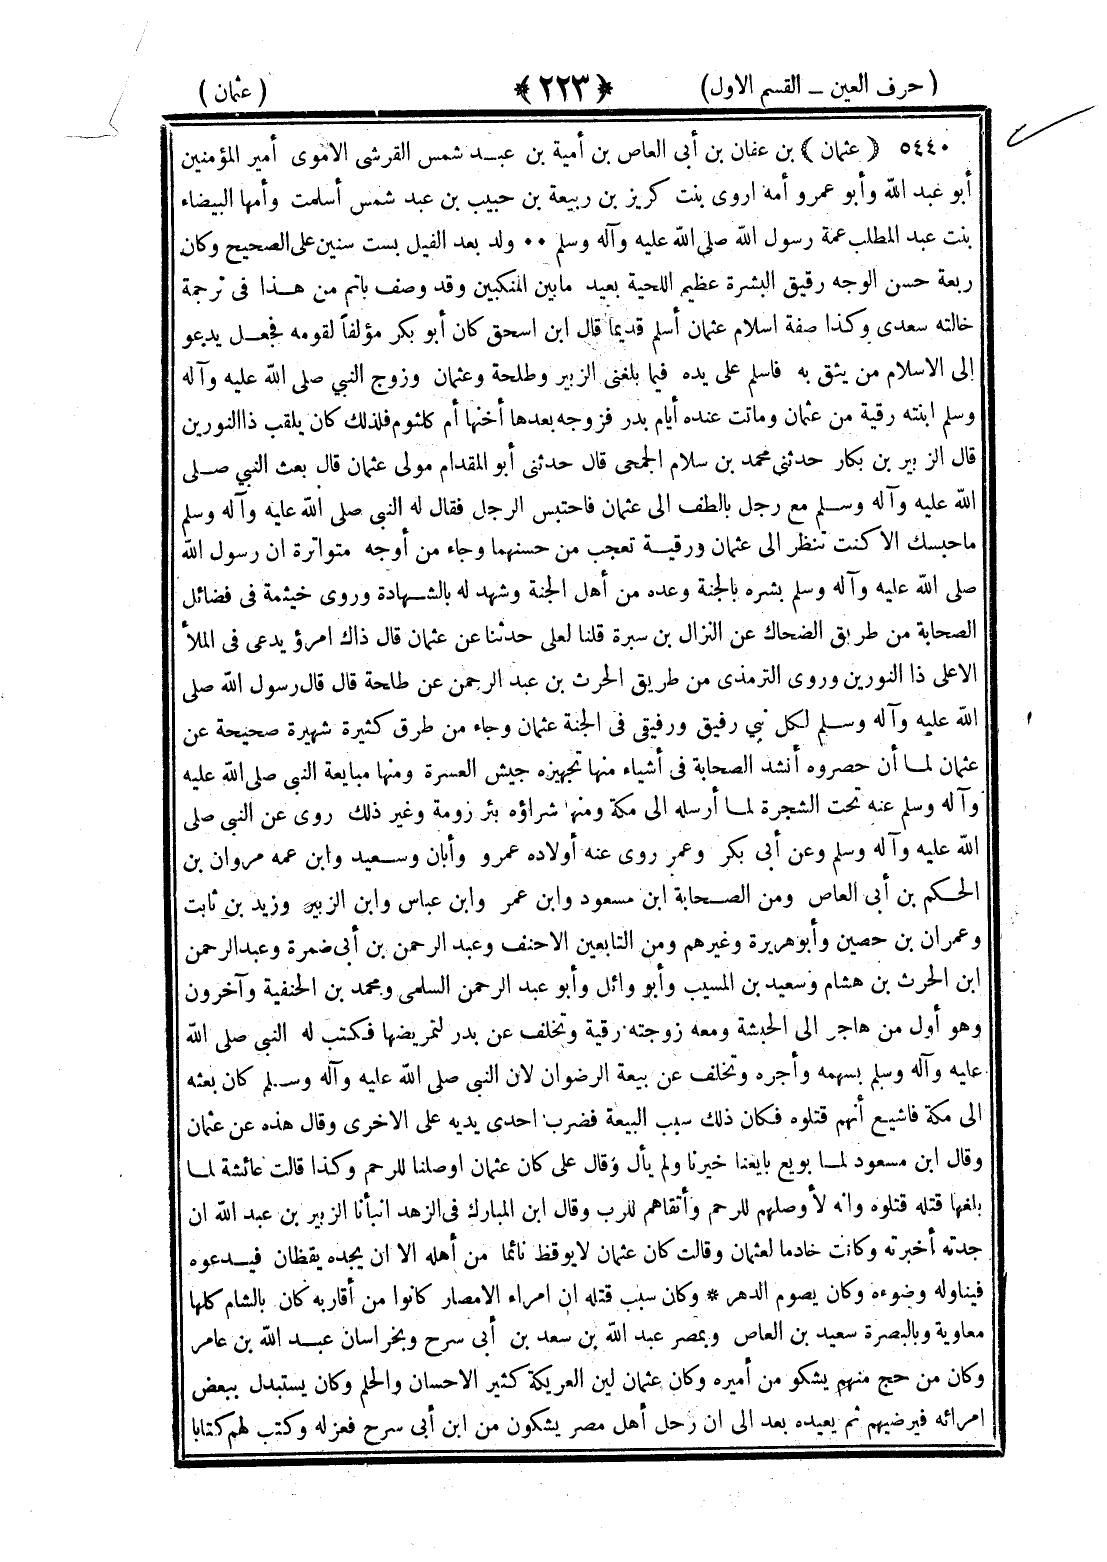 (حرف العين ــ القسم الاول) ﴿٢٢٣﴾ (عثمان)
٥٤٤٠ ﴿عثمان﴾ بن عفان بن أبى العاص بن أمية بن عبـد شمس القرشى الاموى أمير المؤمنين
أبو عبد الله وأبو عمرو أمه اروى بنت كريز بن ربيعة بن حبيب بن عبد شمس أسلمت وأمها البيضاء
بنت عبد المطلب عمة رسول الله صلى الله عليه وآله وسلم ٠٠ ولد بعد الفيل بست سنين على الصحيح وكان
ربعة حسن الوجه رقيق البشرة عظيم اللحية بعيد مابين المنكبين وقد وصف باتم من هـذا فى ترجمة
خالته سعدى وكذا صفة اسلام عثمان أسلم قديما قال ابن اسحق كان أبو بكر مؤلفاً لقومه فجعـل يدعو
إلى الاسلام من يثق به فاسلم على يده فيما بلغنى الزبير وطلحة وعثمان وزوج النبي صلى الله عليه وآله
وسلم ابنته رقية من عثمان وماتت عنده أيام بدر فزوجه بعدها أختها أم كلثوم فلذلك كان يلقب ذا النورين
قال الزبير بن بكار حدثنى محمد بن سلام الجمحى قال حدثنى أبو المقدام مولى عثمان قال بعث النبي صـلى
الله عليه وآله وسـلم مع رجل بالطف الى عثمان فاحتبس الرجل فقال له النبى صلى الله عليه وآله وسلم
ماحبسك الا كنت تنظر الى عثمان ورقيـة تعجب من حسنهما وجاء من أوجه متواترة ان رسول الله
صلى الله عليه وآله وسلم بشره بالجنة وعده من أهل الجنة وشهد له بالشهادة وروى خيثمة فى فضائل
الصحابة من طريق الضحاك عن النزال بن سبرة قلنا لعلى حدثنا عن عثمان قال ذاك امرؤ يدعى فى الملأ
الاعلى ذا النورين وروى الترمذى من طريق الحرث بن عبد الرحمن عن طلحة قال قال رسول الله صلى
الله عليه وآله وسـلم لكل نبي رفيق ورفيقى فى الجنة عثمان وجاء من طرق كثيرة شهيرة صحيحة عن
عثمان لمـا أن حصروه أنشد الصحابة فى أشياء منها تجهيزه جيش العسرة ومنها مبايعة النبى صلى الله عليه
وآله وسلم عنه تحت الشجرة لمـا أرسله الى مكة ومنها شراؤه بئر رومة وغير ذلك روى عن النبى صلى
الله عليه وآله وسلم وعن أبى بكر وعمر روى عنه أولاده عمرو وأبان وسـعيد وابن عمه مروان بن
الحـكم بن أبى العاص ومن الصـحابة ابن مسعود وابن عمر وابن عباس وابن الزبير وزيد بن ثابت
وعمران بن حصين وأبو هريرة وغيرهم ومن التابعين الاحنف وعبد الرحمن بن أبى ضمرة وعبد الرحمن
ابن الحرث بن هشام وسعيد بن المسيب وأبو وائل وأبو عبد الرحمن السلمى ومحمد بن الحنفية وآخرون
وهو أول من هاجر الى الحبشة ومعه زوجته رقية وتخلف عن بدر لتمريضها فكتب له النبي صلى الله
عليه وآله وسلم بسهمه وأجره وتخلف عن بيعة الرضوان لان النبي صلى الله عليه وآله وسـلم كان بعثه
الى مكة فاشيع أنهم قتلوه فكان ذلك سبب البيعة فضرب احدى يديه على الاخرى وقال هذه عن عثمان
وقال ابن مسعود لمـا بويع بايعنا خيرنا ولم يأل وقال على كان عثمان اوصلنا للرحم وكذا قالت عائشة لمـا
بلغها قتله قتلوه وانه لأوصلهم للرحم وأتقاهم للرب وقال ابن المبارك فى الزهد انبأنا الزبير بن عبد الله ان
جدته أخبرته وكانت خادما لعثمان وقالت كان عثمان لايوقظ نائما من أهله الا ان يجده يقظان فيـدعوه
فيناوله وضوءه وكان يصوم الدهر * وكان سبب قتله ان امراء الامصار كانوا من أقاربه كان بالشام كلها
معاوية وبالبصرة سعيد بن العاص وبمصر عبد الله بن سعد بن أبى سرح وبخراسان عبـد الله بن عامر
وكان من حج منهم يشكو من أميره وكان عثمان لين العريكة كثير الاحسان والحلم وكان يستبدل ببعض
امرائه فيرضيهم ثم يعيده بعد الى ان رحل أهل مصر يشكون من ابن أبى سرح فعزله وكتب لهم كتابا